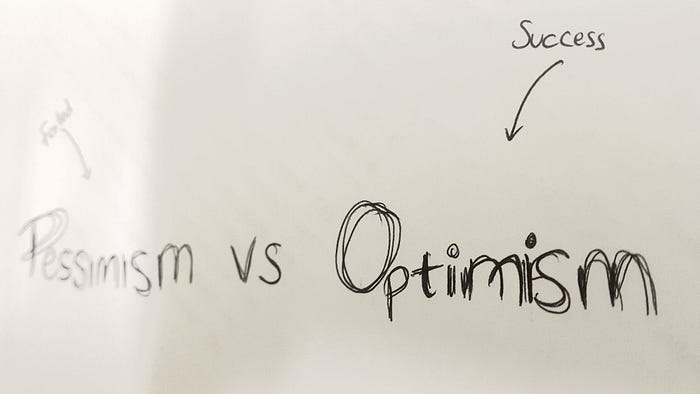 Success
Failed
Pessimism vs Optimism